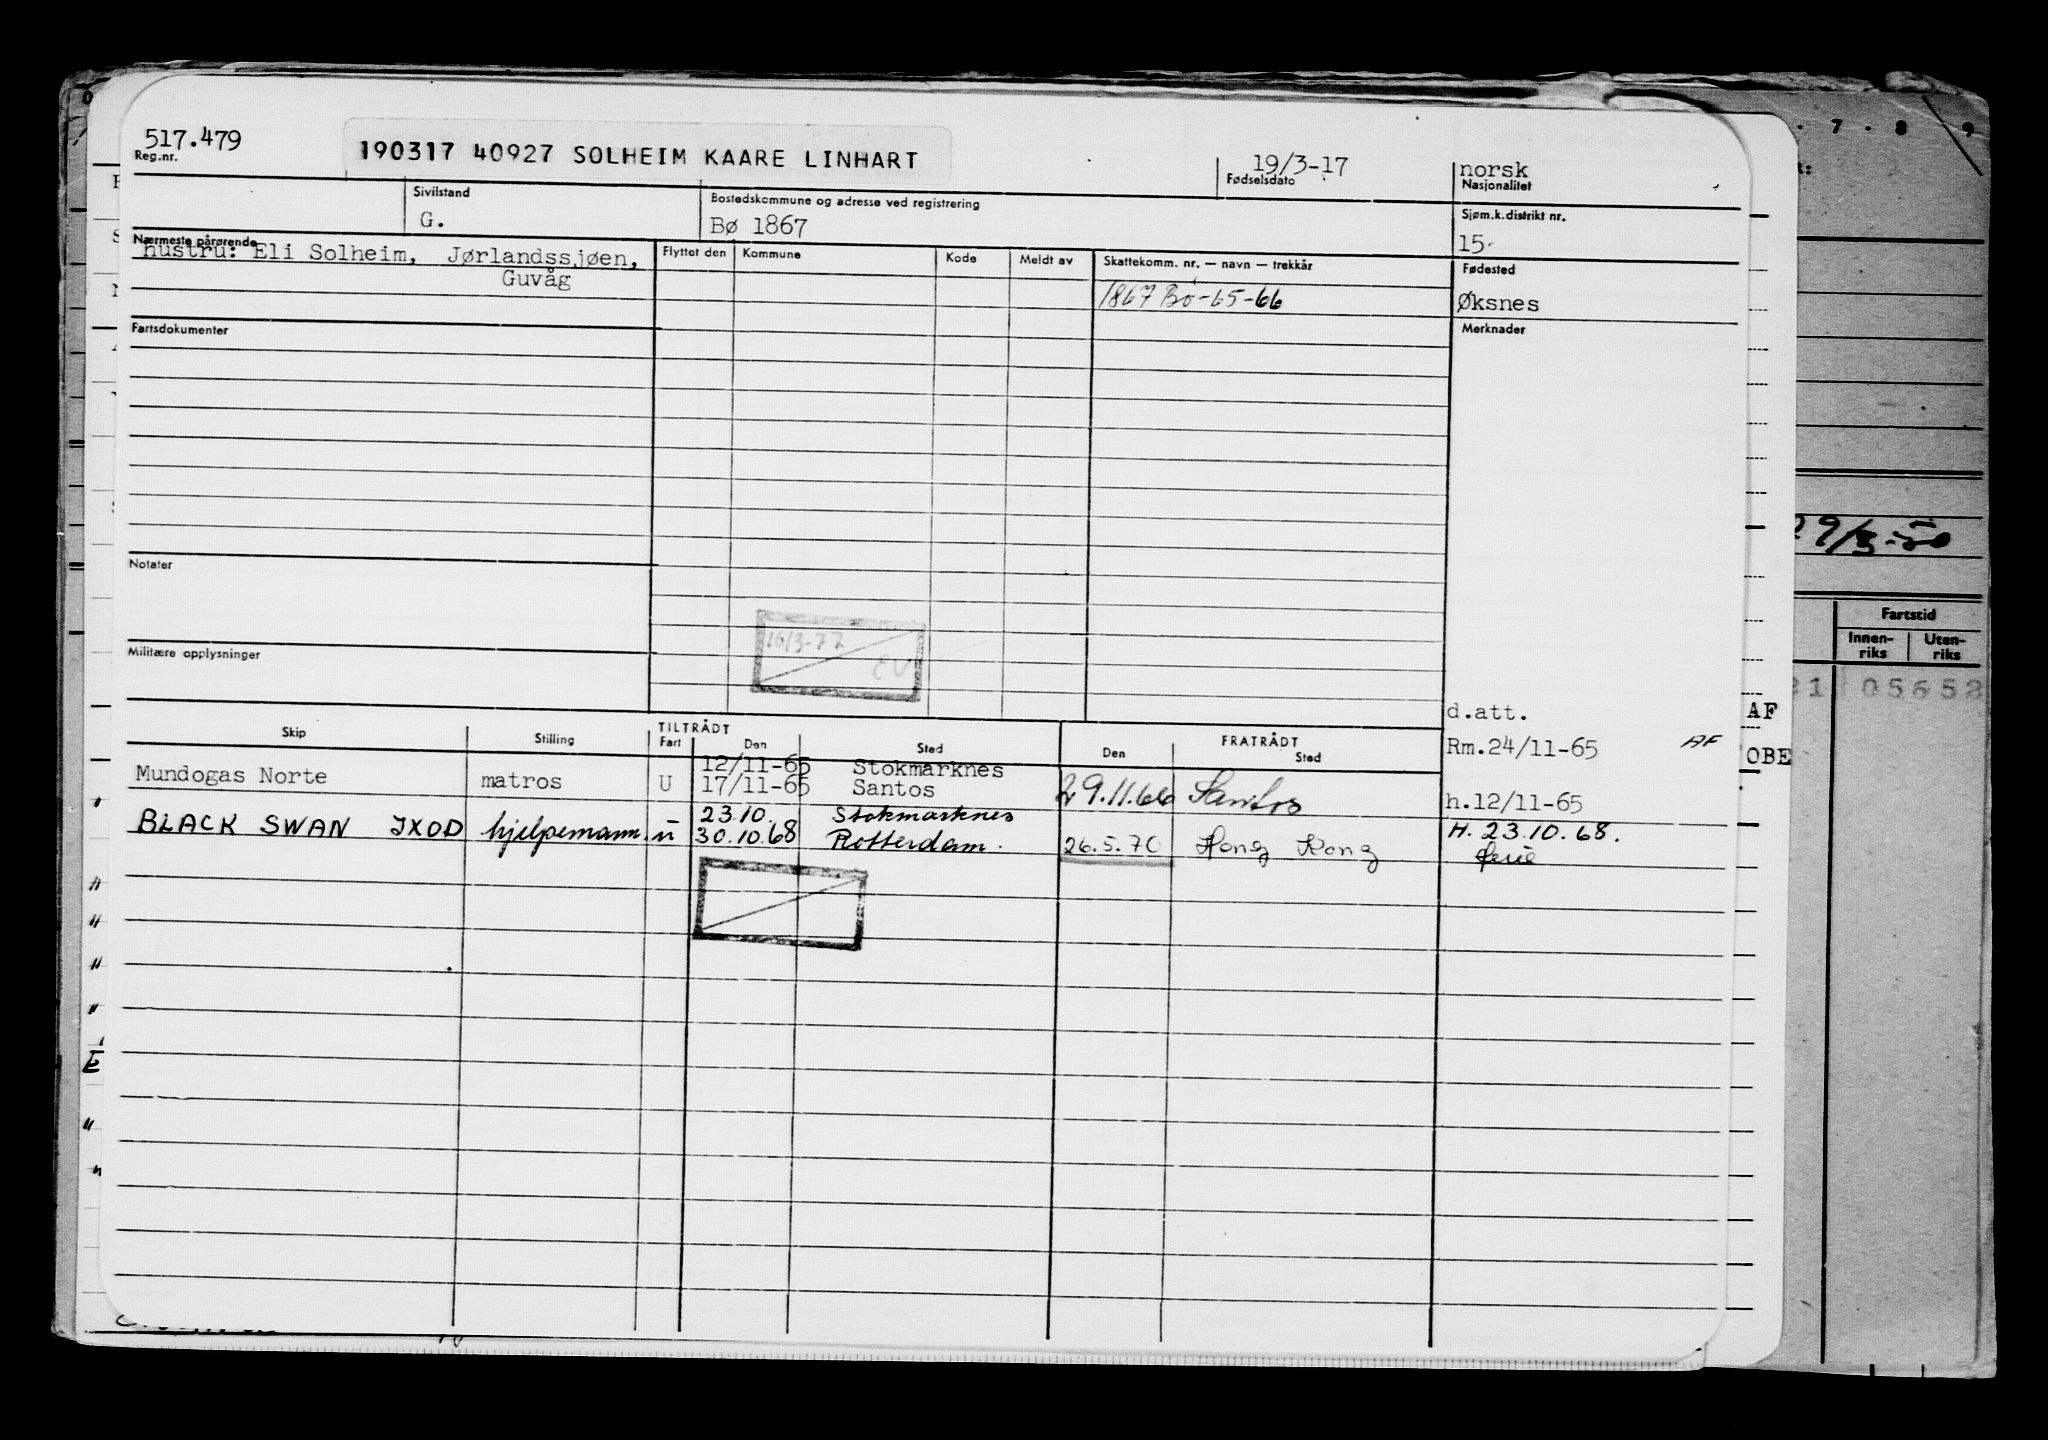 517.479
Reg.nr.
190317 40927 SOLHEIM KAARE LINHART
19/3-17
Fødselsdato
norsk
Nasjonalitet
Sivilstand
G.
Bostedskommune og adresse ved registrering
Bø 1867
Sjøm.k.distrikt nr.
15.
Nærmeste pårørende
hustru: Eli Solheim, Jørlandssjøen,
Guvåg
Flyttet den Kommune Kode Meldt av Skattekomm. nr. — navn — trekkår
1867 Bø-65-66
Fødested
Øksnes
Fartsdokumenter
Merknader
Notater
16/3-77
EV
Militære opplysninger
d.att.
Rm.24/11-65 AF
Skip Stilling TILTRÅDT FRATRÅDT
Fart Den Sted Den Sted
12/11-65 Stokmarknes
Mundogas Norte matros U 17/11-65 Santos 29.11.66 Santos h.12/11-65
23.10. Stokmarknes H. 23.10.68.
BLACK SWAN JXOD hjelpemann. u 30.10.68 Rotterdam. 26.5.70 Hong Kong ferie
7 . 8 9
29/3-50
Fartstid
Innen-
riks
Uten-
riks
31 05652
AF
OBE